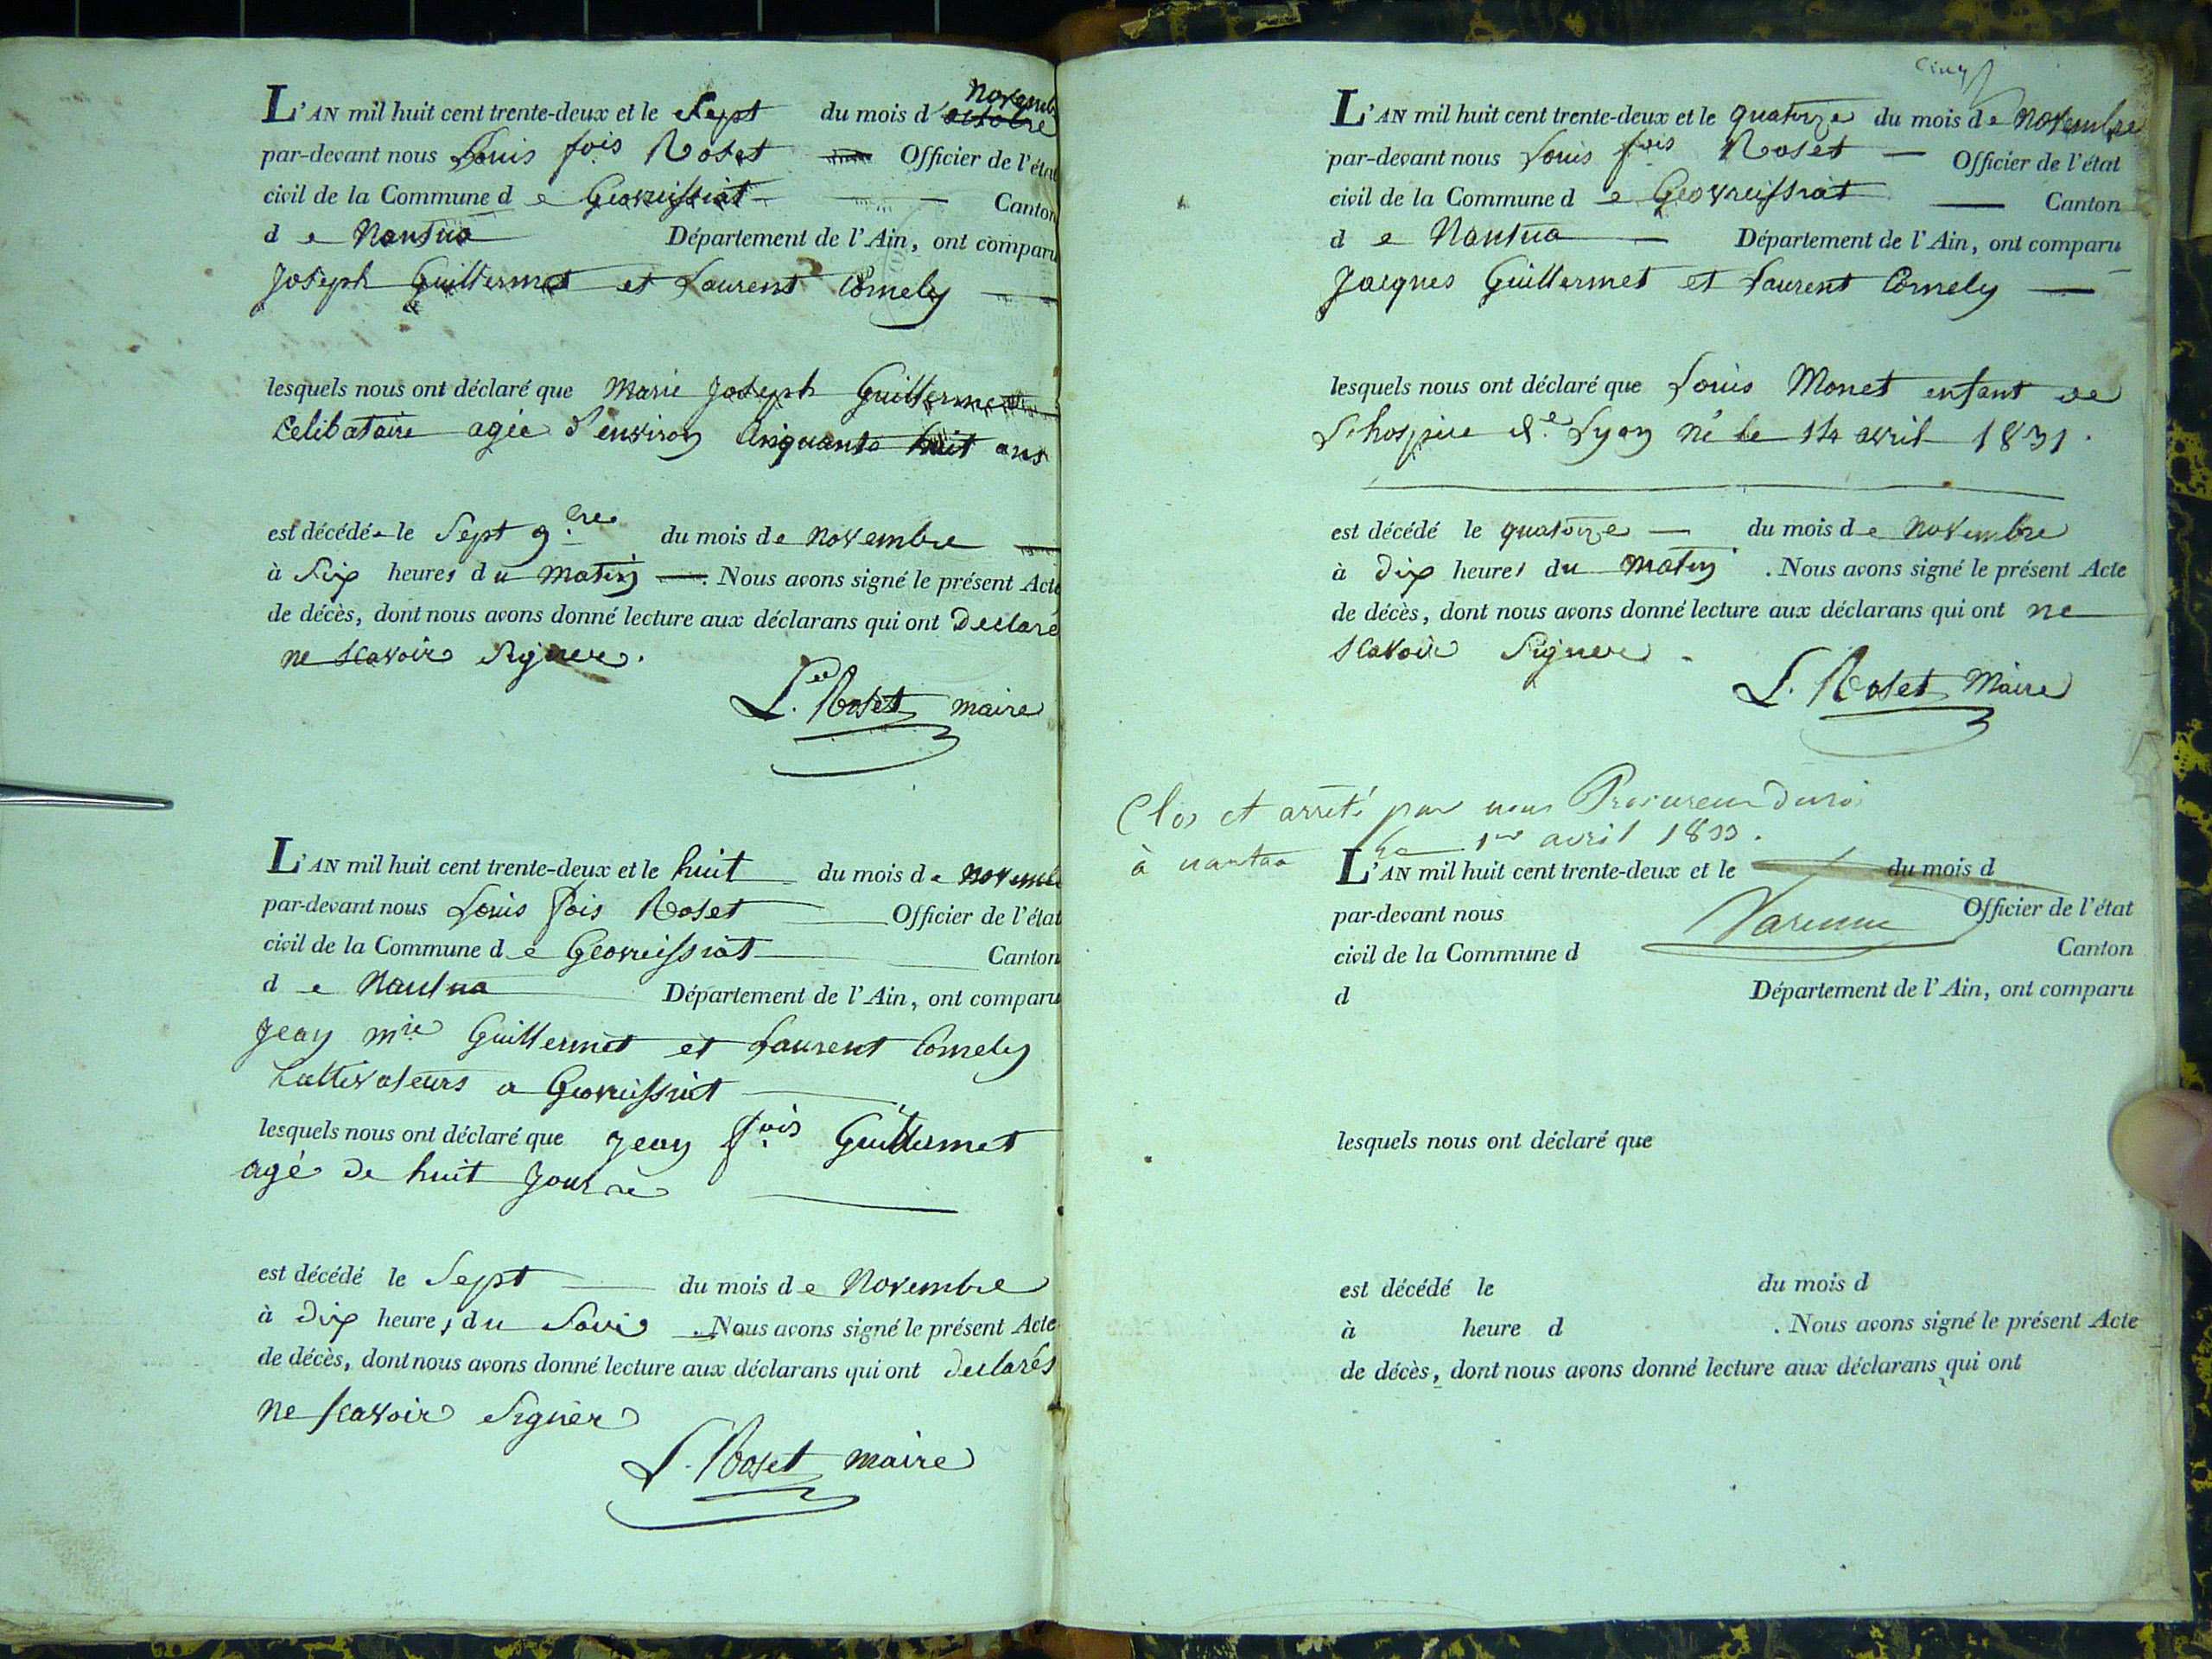 L'AN mil huit cent trente-deux et le Sept du mois d'octobre novembre
par-devant nous Louis fois Roset Officier de l'état
civil de la Commune d e Geovreissiat Canton
d e Nantua Département de l'Ain, ont comparu
Joseph Guillermet et Laurent Comely
lesquels nous ont déclaré que Marie Joseph Guillermet
Celibataire agée d'environ Cinquante huit ans
est décédé e le Sept 9.bre du mois de Novembre
à Six heures du Matin . Nous avons signé le présent Acte
de décès, dont nous avons donné lecture aux déclarans qui ont Declaré
ne scavoir Signer.
L. Roset maire
L'AN mil huit cent trente-deux et le huit du mois de novemb
par-devant nous Louis fois Roset Officier de l'état
civil de la Commune d e Geovreissiat Canton
d e Nantua Département de l'Ain, ont comparu
Jean mrie Guillermet et Laurent Comely
Cultivateurs a Geovreissiat
lesquels nous ont déclaré que Jean f.ois Guillermet
agé de huit Jour
est décédé le Sept du mois de Novembre
à Dix heures du Soir . Nous avons signé le présent Acte
de décès, dont nous avons donné lecture aux déclarans qui ont declarés
ne scavoir Signer
L. Roset maire
Cinq
L'AN mil huit cent trente-deux et le quatorze du mois de Novembre
par-devant nous Louis fois Roset Officier de l'état
civil de la Commune d e Geovreissiat Canton
d e Nantua Département de l'Ain, ont comparu
Jacques Guillermet et Laurent Comely
lesquels nous ont déclaré que Louis Monet enfant de
L'hospice de Lyon né le 14 avril 1831.
est décédé le quatorze du mois de Novembre
à Dix heures du Matin . Nous avons signé le présent Acte
de décès, dont nous avons donné lecture aux déclarans qui ont ne
scavoir Signer
L. Roset Maire
Clos et arrêté par nous Procureur du roi
à nantua le 1er avril 1833.
L'AN mil huit cent trente-deux et le du mois d
par-devant nous Officier de l'état
civil de la Commune d Varenne Canton
d Département de l'Ain, ont comparu
lesquels nous ont déclaré que
est décédé le du mois d
à heure d . Nous avons signé le présent Acte
de décès, dont nous avons donné lecture aux déclarans qui ont